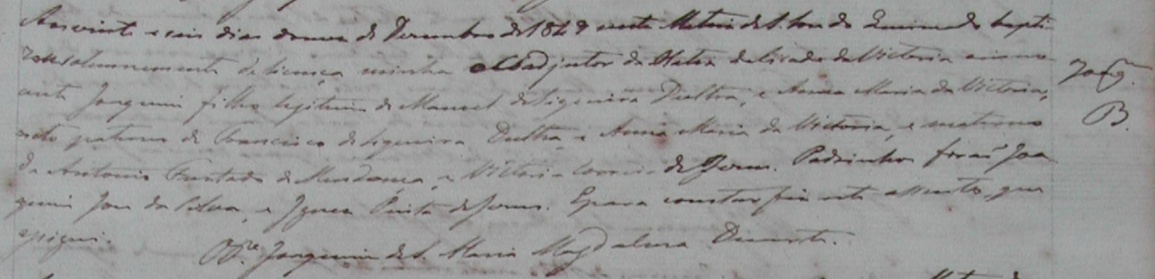 Aos vinte e seis dias do mes de Dezembro de 1849 nesta Matriz de S. Jose do Queimado bapti-
zou solemnemente de licença minha o Coadjutor da Matriz da Cidade da Victoria ao inno-
cente Joaquim filho legitimo de Manoel de Siqueira Dultra, e Anna Maria da Victoria,
neto paterno de Francisco de Siqueira Dultra e Anna Maria da Victoria, e materno
de Antonio Furtado de Mendonça, e Victoria Correia de Jesus. Padrinhos forão Joa
quim Jose da Silva, e Ignez Pinta de Jesus. E para constar fiz este assento, que
assignei.
O Pe. Joaquim de S. Maria Magdalena Duarte.
Joaqm.
B.